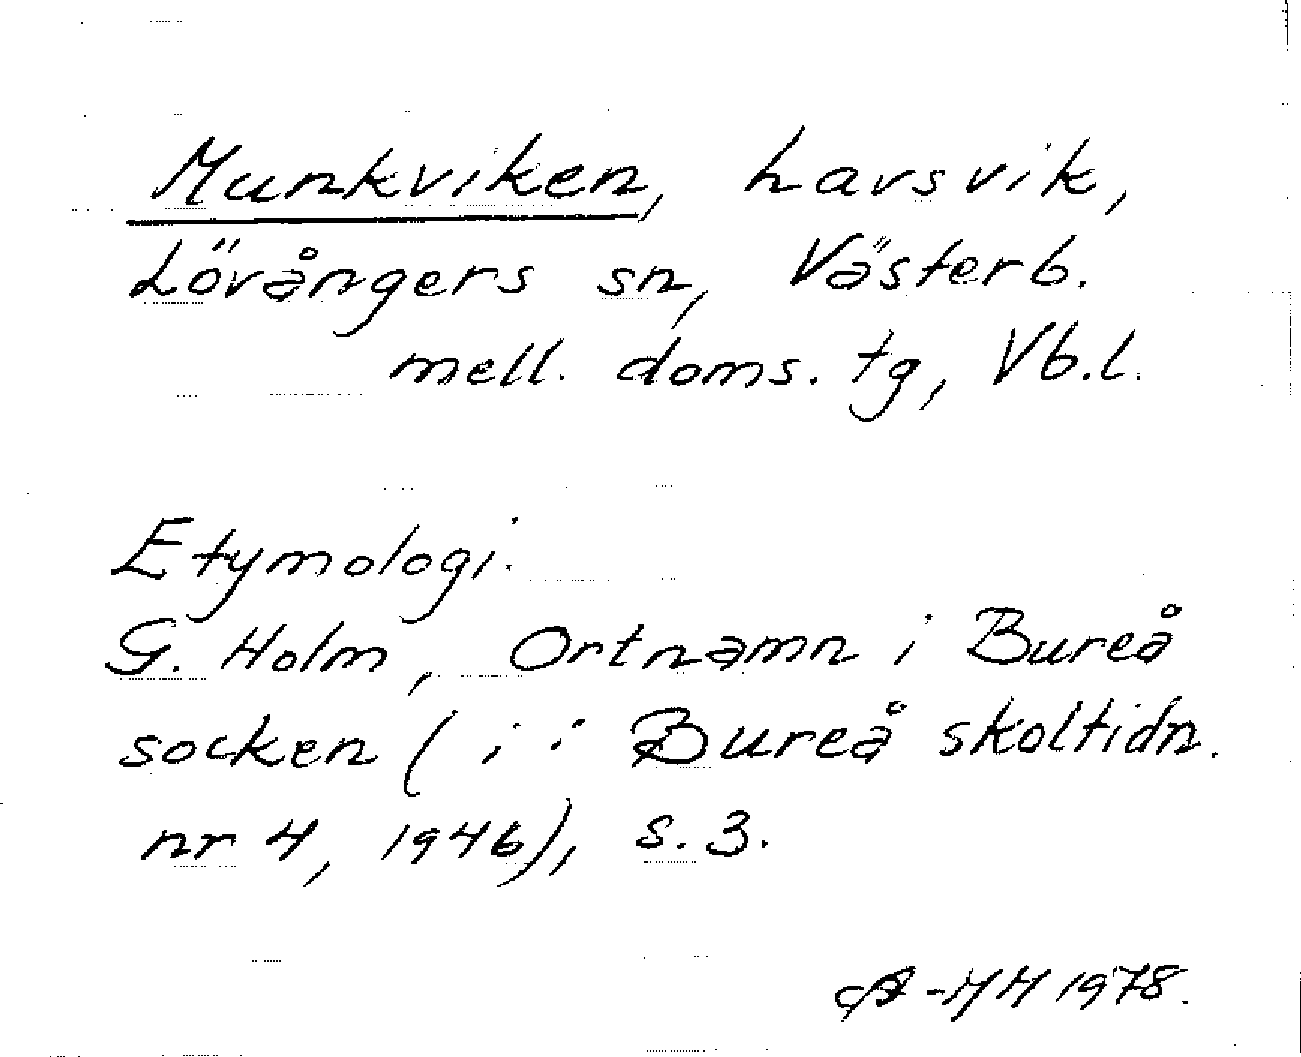 Munkviken, havsvik,
Lövångers sn, Västerb.
mell. doms. tg, Vb.l.
Etymologi.
G. Holm, Ortnamn i Bureå
socken (i: Bureå skoltidn.
nr 4, 1946), s. 3.
A-MH 1978.